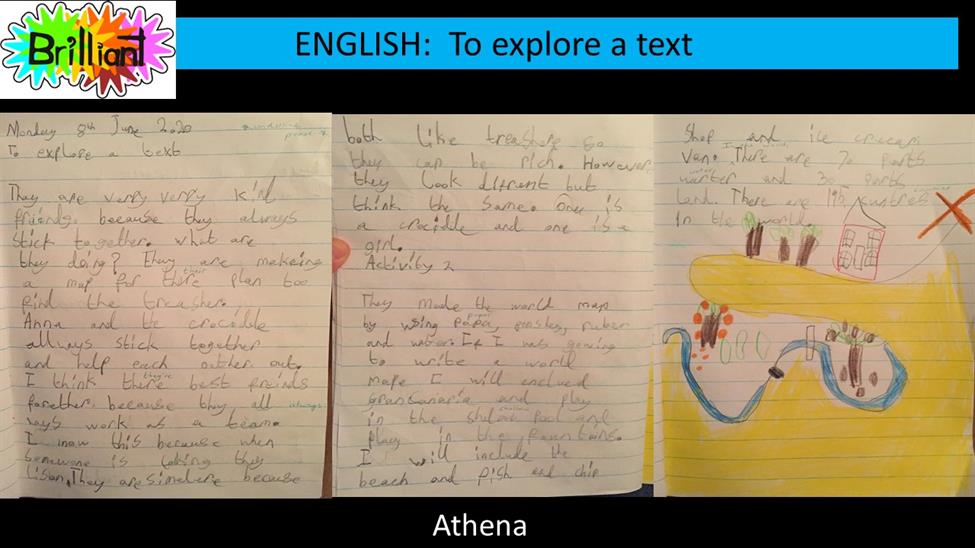 Brilliant
ENGLISH: To explore a text
Monday 8th June 2020
To explore a text
They are verry verry kind
friends because they always
stick together. what are
they doing? They are makeing
their
a map for there plan too
find the treasher.
Anna and the crocodile
allways stick together
and help each outher out.
they're
I think there best freinds
forether because they all always
ways work as a team.
I now this because when
somewone is talking they
lison. They are simelere because
both like treashere so
they can be rich. However
they look difrent but
think the same. One is
a crocidile and one is a
girl.
Activity 2
They made the world map
paper
by using papa, ruber
and water. If I was gowing
to write a world
mape I will enclued
Grancanaria and play
in the pool and
play in the fountins.
I will include the
beach and fish and chip
Shop and ice crecam
Van. There are 70 parts
water
warter and 30 parts
Land. There are 195
In the world.
Athena